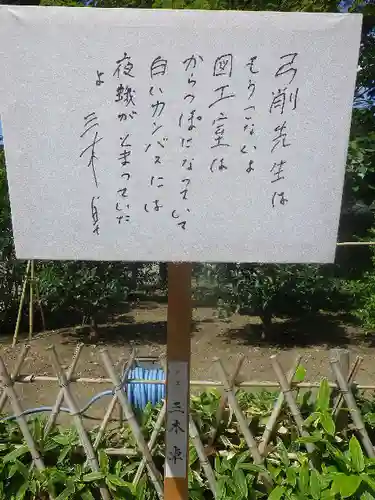 弓削先生は
もうこないよ
図工室は
からっぽになっていて
白いカンバスには
夜蛾がとまっていた
よ 三木卓
三木 卓